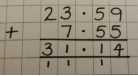 23.59
+ 7.55
31.14
1 1 1